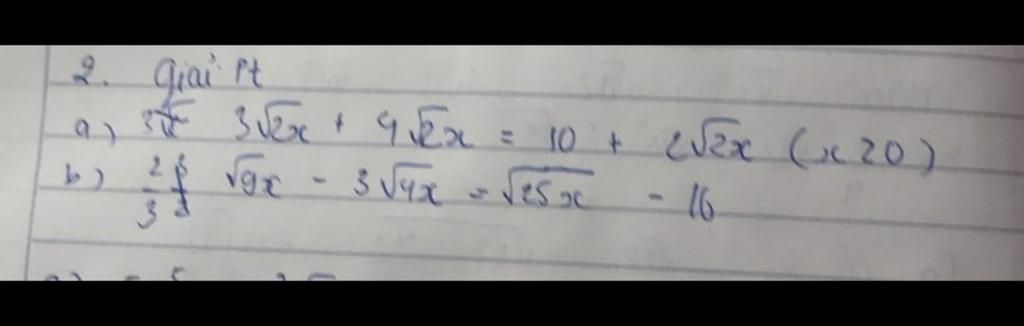 2. Giải Pt
a) 3√2x + 4√2x = 10 + 2√2x (x≥0)
b) 2/3 √9x - 3√4x = √25x - 16